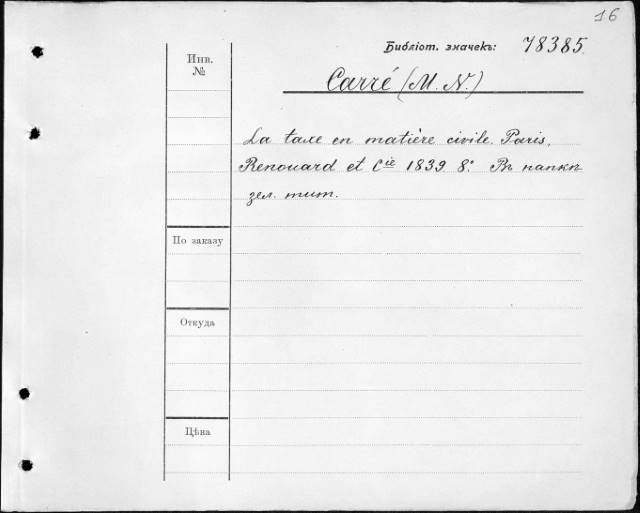 16
Библіот. значекъ: 78385.
Инв. №
Carré (M. N.)
La taxe en matière civile. Paris,
Renouard et Cie 1839 8°. Въ папкѣ
зел. тит.
По заказу
Откуда
Цѣна